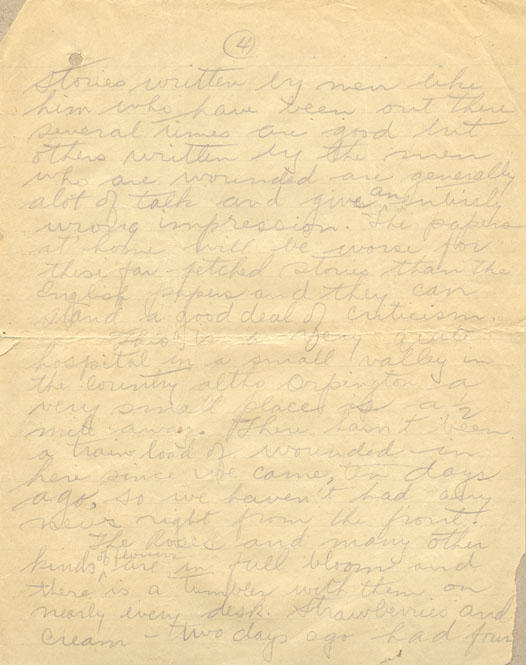 4
Stories written by men like
him who have been out there
several times are good but
others written by the men
who are wounded are generally
alot of talk and give an entirely
wrong impression. The papers
at home will be worse for
these far-fetched stories than the
English papers and they can
stand a good deal of criticism.
This is a very
hospital in a small valley in
the country altho Orpington a
very small place is a 1/2
mile away. There hasn't been
a train load of wounded in
here since we came, ten days
ago, so we haven't had any
news right from the front.
The Roses and many other
kinds of flowers are in full bloom and
there is a tumbler with them on
nearly every desk. Strawberries and
cream - two days ago had four